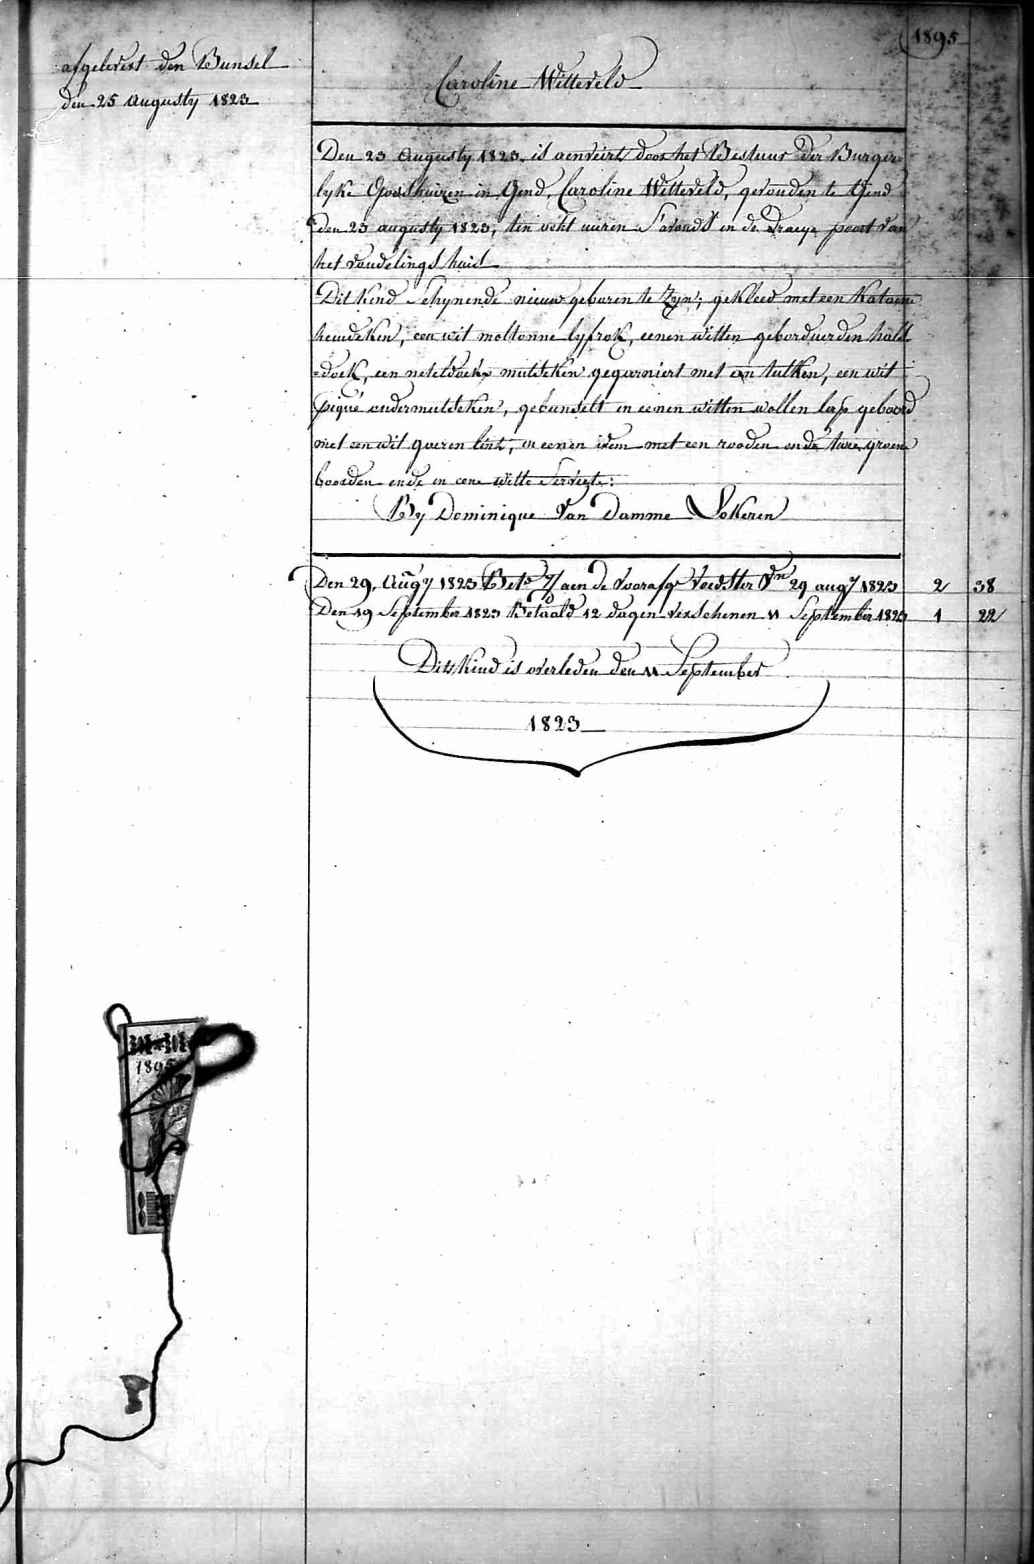 1895
afgelevert den Bunsel
den 25 Augusty 1823
Caroline Witteveld
Den 23 Augusty 1823, is aenveirt door het Bestuur der Burger-
lyke Godshuizen in Gend, Caroline Witteveld, gevonden te Gend
den 23 augusty 1823, ten acht uuren S'avonds in de Draeye poort van
het vondelings huis
Dit Kind Schynende nieuw geboren te Zyn; gekleed met een Katoene
hemdeken, een wit moltonne lyfrok, eenen witten geborduerden hals
=doek, een neteldoekx mutseken gegarniert met en tulken, een wit
piqué ondermutseken, gebunselt in eenen witten wollen lap geboord
met een wit gaeren lint, in eenen idem met een rooden ende twee groene
boorden ende in eene witte Serviete:
By Dominique Van Damme Lokeren
Den 29, Augy 1823 Bete 7/ aen de Voorafge Voedster Vn 29 augy 1823 2 38
Den 19 September 1823 Betaald 12 dagen verschenen 11 September 1823 1 22
Dits Kind is overleden den 11 September
1823
1895